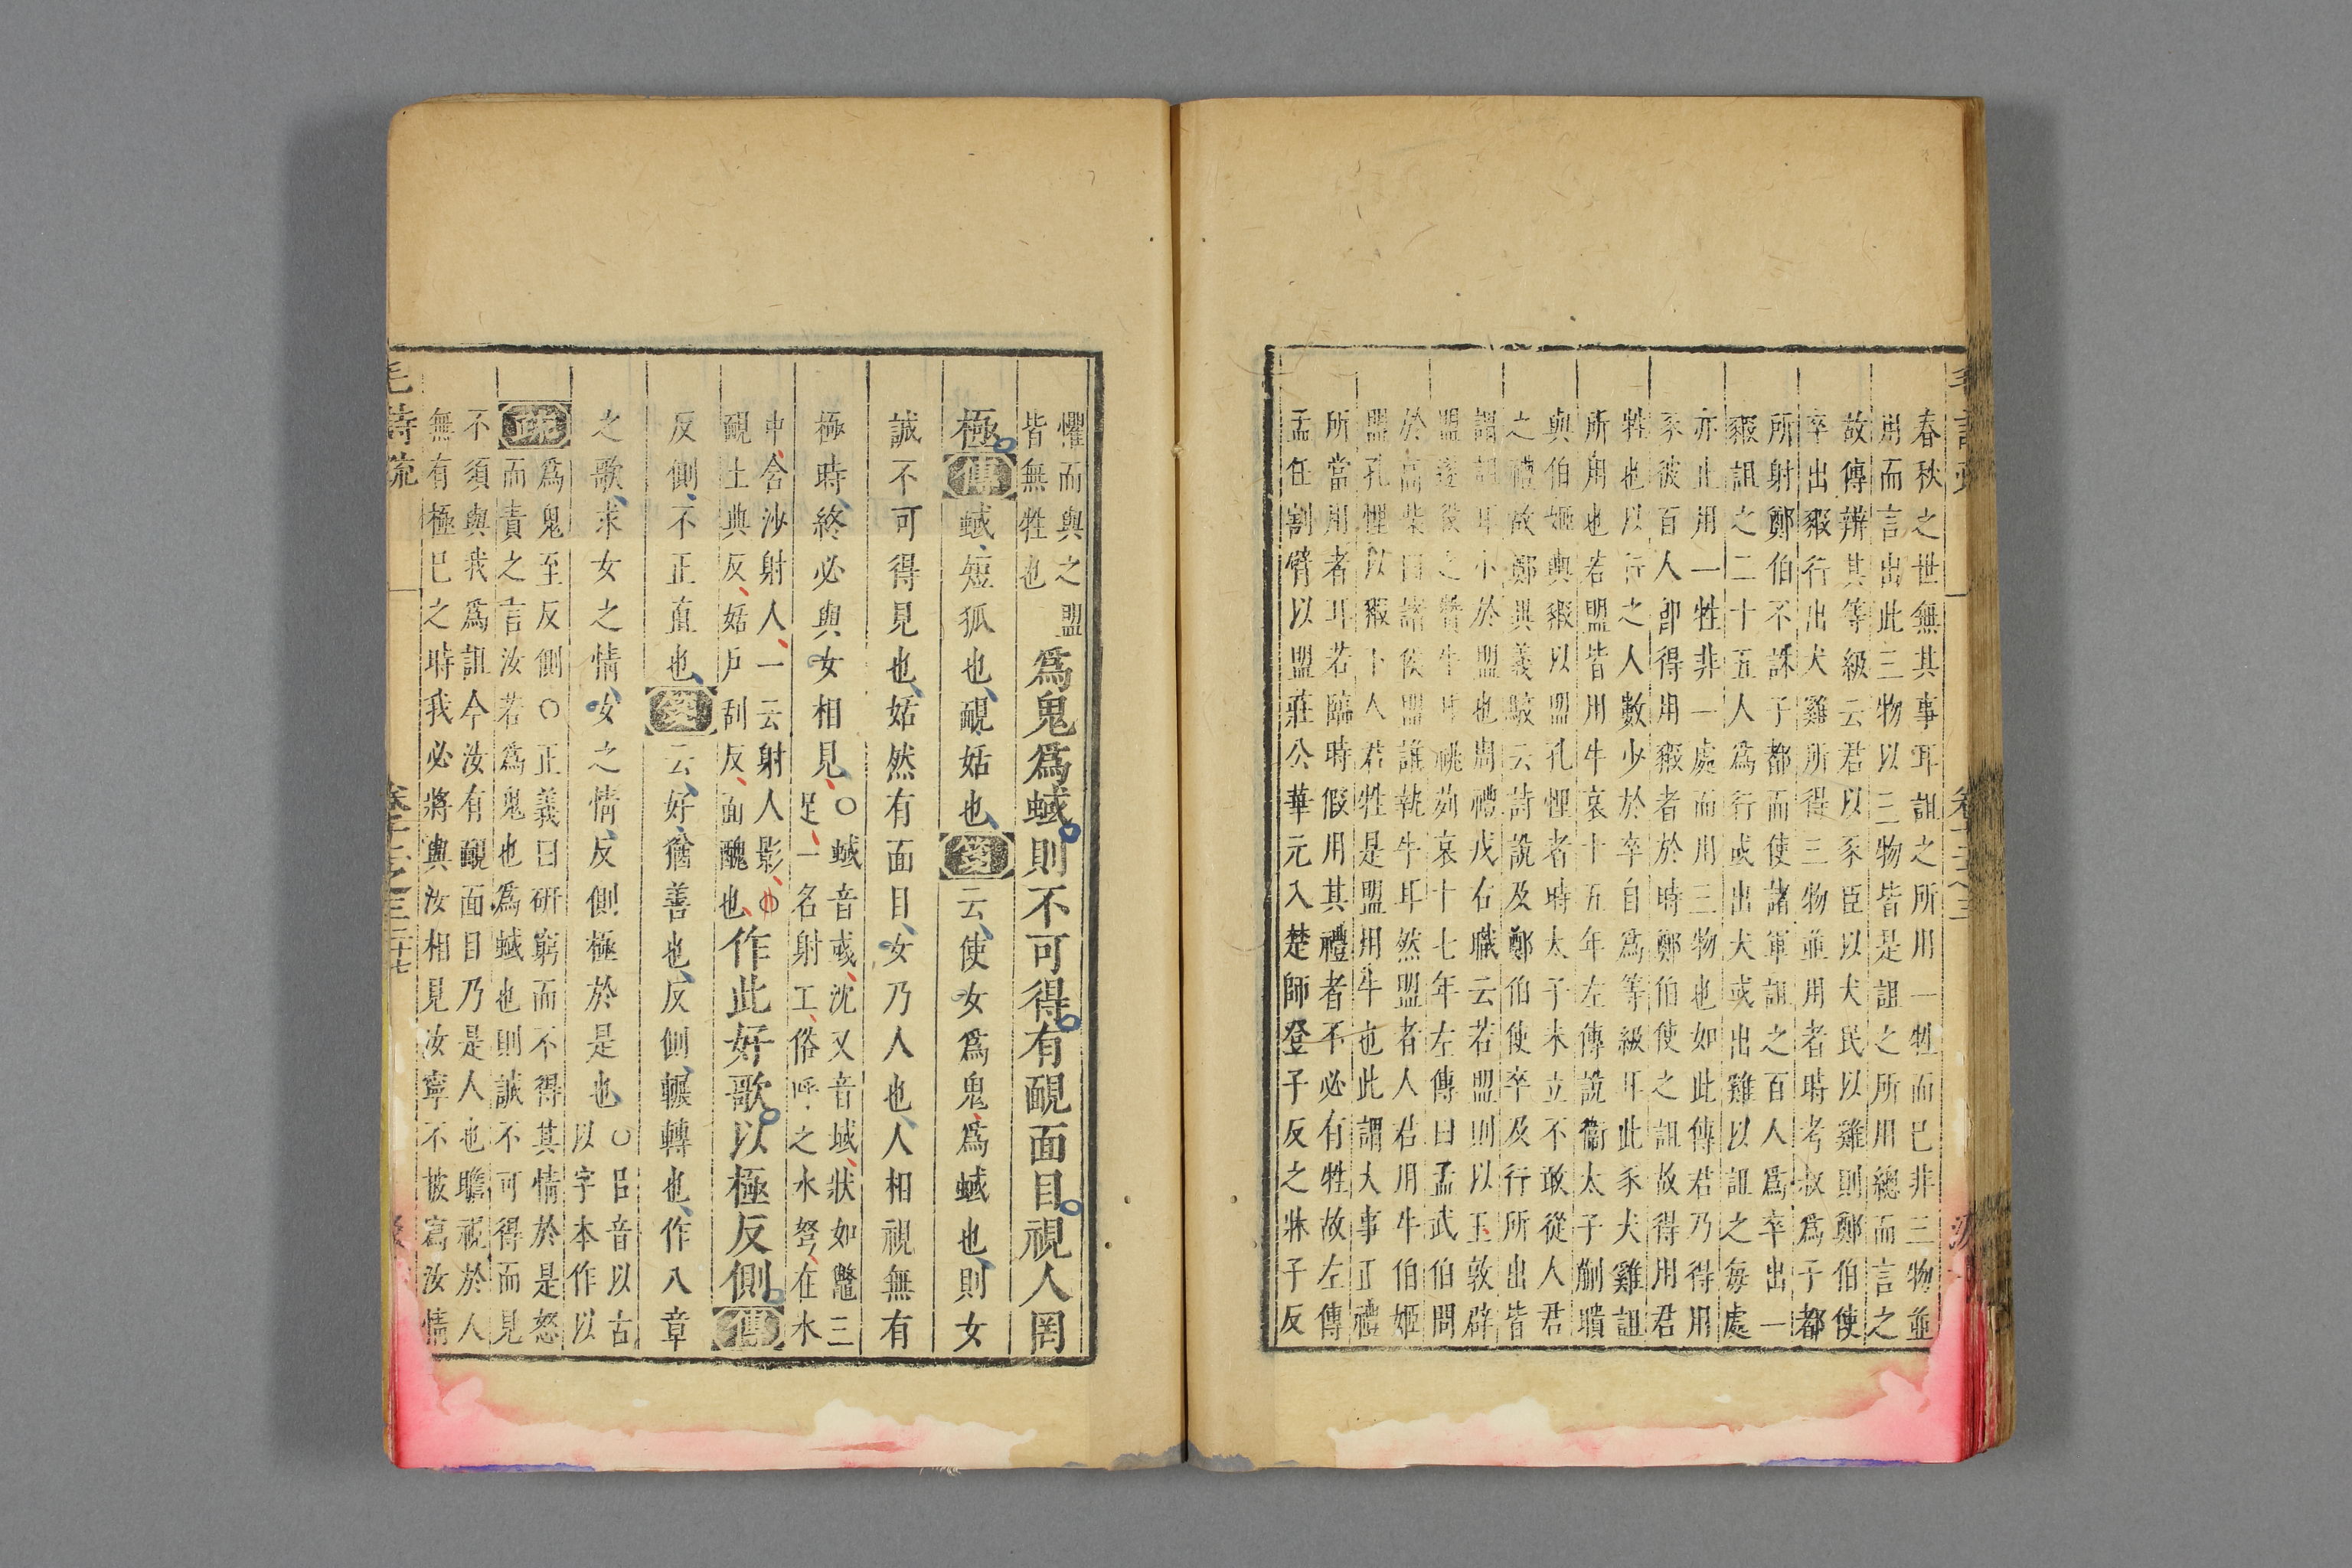 春秋之世無其事耳詛之所用一牲而已非三物並
用而言出此三物以三物皆是詛之所用總而言之
故傳辨其等級云君以豕臣以犬民以雞則鄭伯使
卒出豭行出犬雞所得三物並用者時考叔爲子都
所射鄭伯不誅子都而使諸軍詛之百人爲卒出一
豭詛之二十五人爲行或出犬或出雞以詛之每處
亦止用一牲非一處而用三物也如此傳君乃得用
豕彼百人卽得用豭者於時鄭伯使之詛故得用君
牲也以行之人數少於卒自爲等級耳此豕犬雞詛
所用也若盟皆用牛哀十五年左傳說衞太子蒯聵
與伯姬與豭以盟孔悝者時太子未立不敢從人君
之禮故鄭異義駁云詩說及鄭伯使卒及行所出皆
謂詛耳小於盟也周禮戎右職云若盟則以玉敦辟
盟遂役之贊牛耳桃茢哀十七年左傳曰孟武伯問
於高柴曰諸侯盟誰執牛耳然盟者人君用牛伯姬
盟孔悝以豭下人君牲是盟用牛也此謂大事正禮
所當用者耳若臨時假用其禮者不必有牲故左傳
孟任割臂以盟莊公華元入楚師登子反之牀子反
懼而與之盟
皆無牲也
爲鬼爲蜮則不可得有靦面目視人罔
極傳蜮短狐也靦姑也箋云使女爲鬼爲蜮也則女
誠不可得見也姑然有面目女乃人也人相視無有
極時終必與女相見
○蜮音或沈又音域狀如鼈三
足一名射工俗呼之水弩在水
中含沙射人一云射人影○
靦土典反姑戶刮反面醜也
作此好歌以極反側傳
反側不正直也箋云好猶善也反側輾轉也作八章
之歌求女之情女之情反側極於是也
○㠯音以古
以字本作以
疏
爲鬼至反側○正義曰研窮而不得其情於是怒
而責之言汝若爲鬼也爲蜮也則誠不可得而見
不須與我爲詛今汝有靦面目乃是人也瞻視於人
無有極已之時我必將與汝相見汝寧不被窮汝情
毛詩疏
卷十二之三
三十七